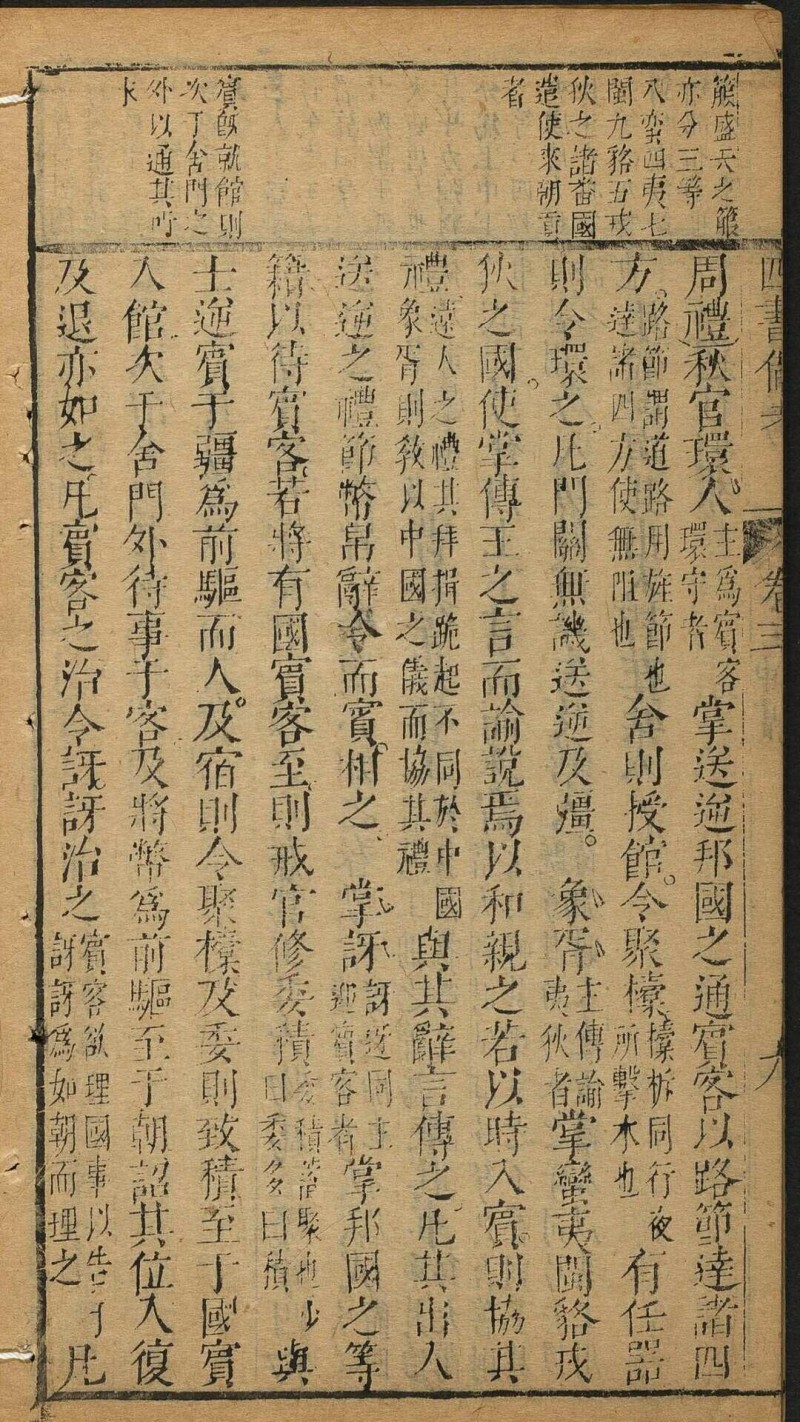 簱盛夭之箙
亦分三等
八蠻四夷七
閩九貉五戎
狄之諸蕃國
遣使來朝貢
者
賓旣就館則
次于舍門之
外以通其所
求
四書備考 卷三 九
周禮秋官環人主爲賓客環守者掌送逆邦國之通賓客以路節達諸四
方路節謂道路用旌節也達諸四方使無阻也舍則授館令聚𣝔𣝔柝同行夜所擊木也有任器
則令環之凡門關無譏送逆及疆。象胥主傳諭夷狄者掌蠻夷閩貉戎
狄之國使掌傳王之言而諭說焉以和親之若以時入賓則協其
禮遠人之禮其拜揖跪起不同於中國象胥則敎以中國之儀而協其禮與其辭言傳之凡其出入
送逆之禮節幣帛辭令而賓相之掌訝訝迓同主迎賓客者掌邦國之等
籍以待賓客若將有國賓客至則戒官修委積委積蓄聚也少曰委多曰積與
士逆賓于疆爲前驅而入及宿則令聚𣝔及委則致積至于國賓
入館次于舍門外待事于客及將幣爲前驅至于朝詔其位入復
及退亦如之凡賓客之治令訝訝治之賓客欲理國事以告訝訝爲如朝而理之凡